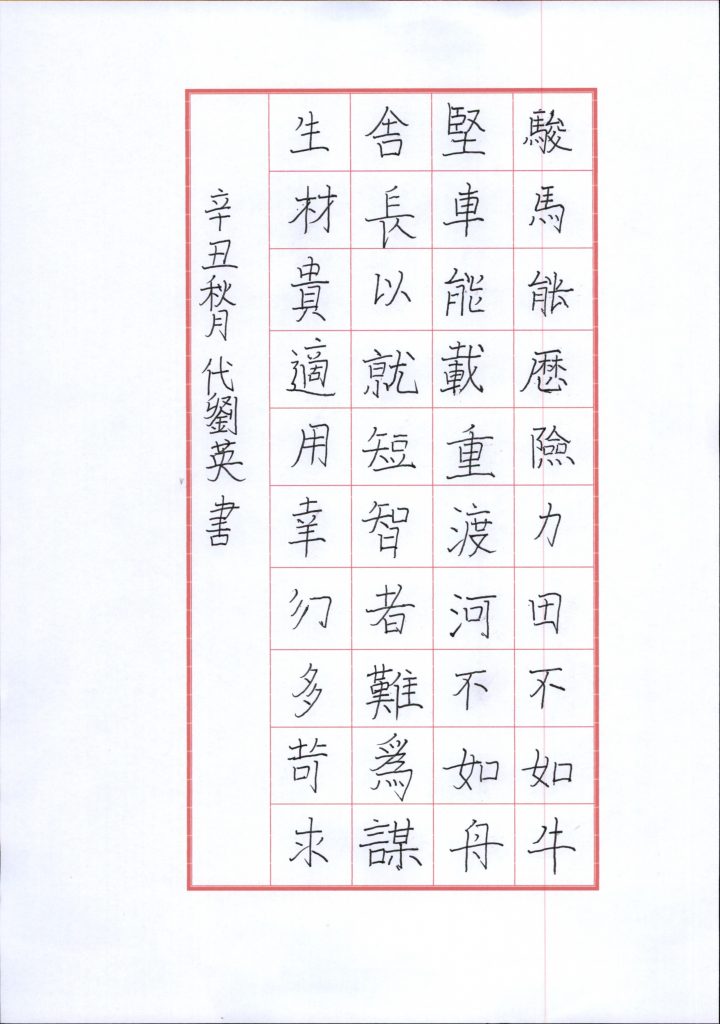 駿馬能歷險力田不如牛
堅車能載重渡河不如舟
舍長以就短智者難為謀
生材貴適用幸勿多苛求
辛丑秋月 代劉英書